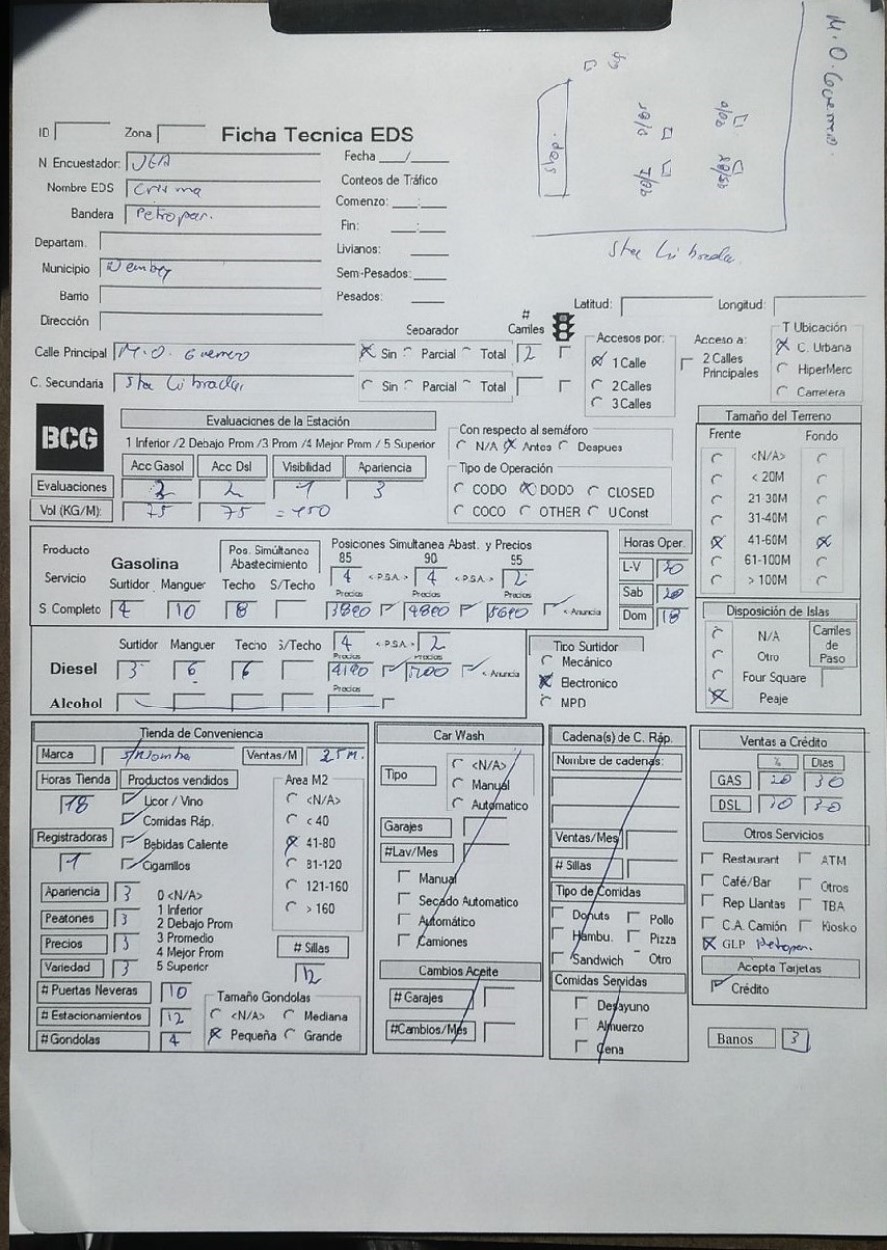 M. O. Guerrero.
Sta Librada
ID Zona Ficha Tecnica EDS
N. Encuestador: JEA Fecha __/__
Nombre EDS Crisma Conteos de Tráfico
Bandera Petropar. Comenzo: __:__
Fin: __:__
Departam. Livianos:
Municipio Ñemby Sem-Pesados:
Barrio Pesados:
Dirección Latitud: Longitud:
Separador # Carriles Accesos por: Acceso a: T Ubicación
Calle Principal M. O. Guerrero Sin Parcial Total 2 1 Calle 2 Calles Principales C. Urbana
C. Secundaria Sta Librada Sin Parcial Total 2 Calles HiperMerc
3 Calles Carretera
BCG
Evaluaciones de la Estación Con respecto al semáforo Tamaño del Terreno
1 Inferior /2 Debajo Prom /3 Prom /4 Mejor Prom / 5 Superior N/A Antes Despues Frente Fondo
Acc Gasol Acc Dsl Visibilidad Apariencia Tipo de Operación <N/A>
Evaluaciones 2 2 1 3 CODO DODO CLOSED < 20M
Vol (KG/M): 75 75 = 150 COCO OTHER U Const 21-30M
31-40M
41-60M
61-100M
> 100M
Producto Pos. Simúltanea Abastecimiento Posiciones Simultanea Abast. y Precios Horas Oper.
Servicio Gasolina 85 90 95 L-V 20
Surtidor Manguer Techo S/Techo 4 < P.S.A. > 4 < P.S.A. > 2 Sab 20
Precios Precios Precios
S. Completo 4 10 8 3890 4890 5690 < Anuncia Dom 18
Disposición de Islas
N/A Carriles de Paso
Otro
Four Square
Peaje
Surtidor Manguer Techo S/Techo 4 < P.S.A. > 2 Tico Surtidor
Precios Precios Mecánico
Diesel 3 6 6 4190 5200 < Anuncia Electronico
Precios
Alcohol MPD
Tienda de Conveniencia Car Wash Cadena(s) de C. Ráp. Ventas a Crédito
Marca s/Nombre Ventas/M 25M. Nombre de cadenas: % Dias
Horas Tienda Productos vendidos Area M2 Tipo <N/A> GAS 20 30
18 Licor / Vino <N/A> Manual DSL 10 30
Comidas Ráp. < 40 Automatico Otros Servicios
Registradoras Bebidas Caliente 41-80 Garajes Ventas/Mes Restaurant ATM
1 Cigarrillos 81-120 #Lav/Mes # Sillas Café/Bar Otros
121-160 Manual Tipo de Comidas Rep Llantas TBA
Apariencia 3 0 <N/A> > 160 Secado Automatico Donuts Pollo C.A. Camión Kiosko
Peatones 3 1 Inferior Automático Hambu. Pizza GLP Petropar.
2 Debajo Prom
Precios 3 3 Promedio # Sillas Camiones Sandwich Otro Acepta Tarjetas
4 Mejor Prom
Variedad 3 5 Superior 12 Cambios Aceite Comidas Servidas Crédito
# Puertas Neveras 10 Tamaño Gondolas # Garajes Desayuno
# Estacionamientos 12 <N/A> Mediana Almuerzo
#Gondolas 4 Pequeña Grande #Cambios/Mes Cena Banos 3